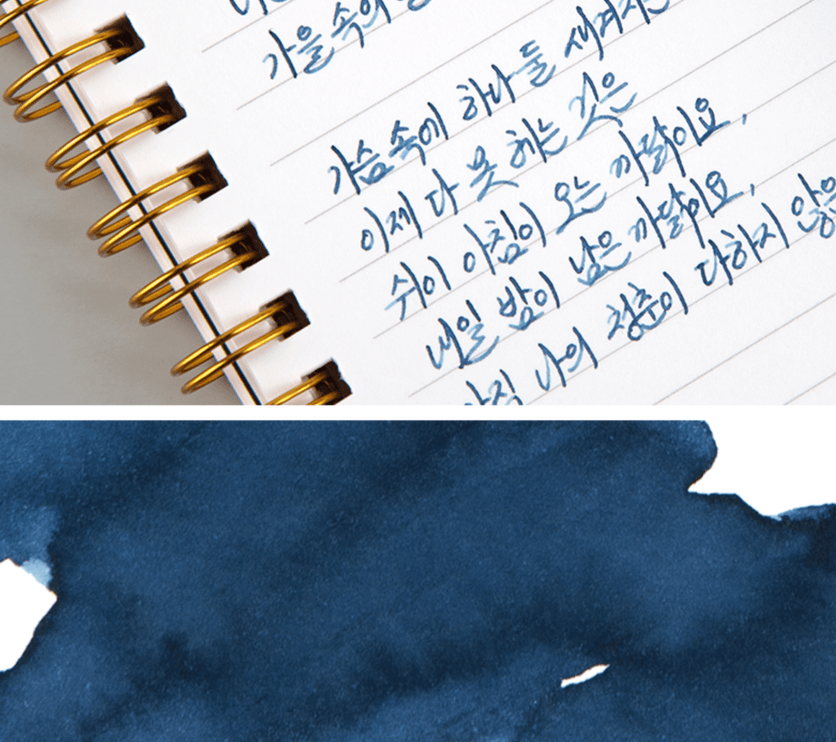 가을 속의
가슴 속에 하나 둘 새겨지는
이제 다 못 헤는 것은
쉬이 아침이 오는 까닭이요,
내일 밤이 남은 까닭이요,
아직 나의 청춘이 다하지 않은